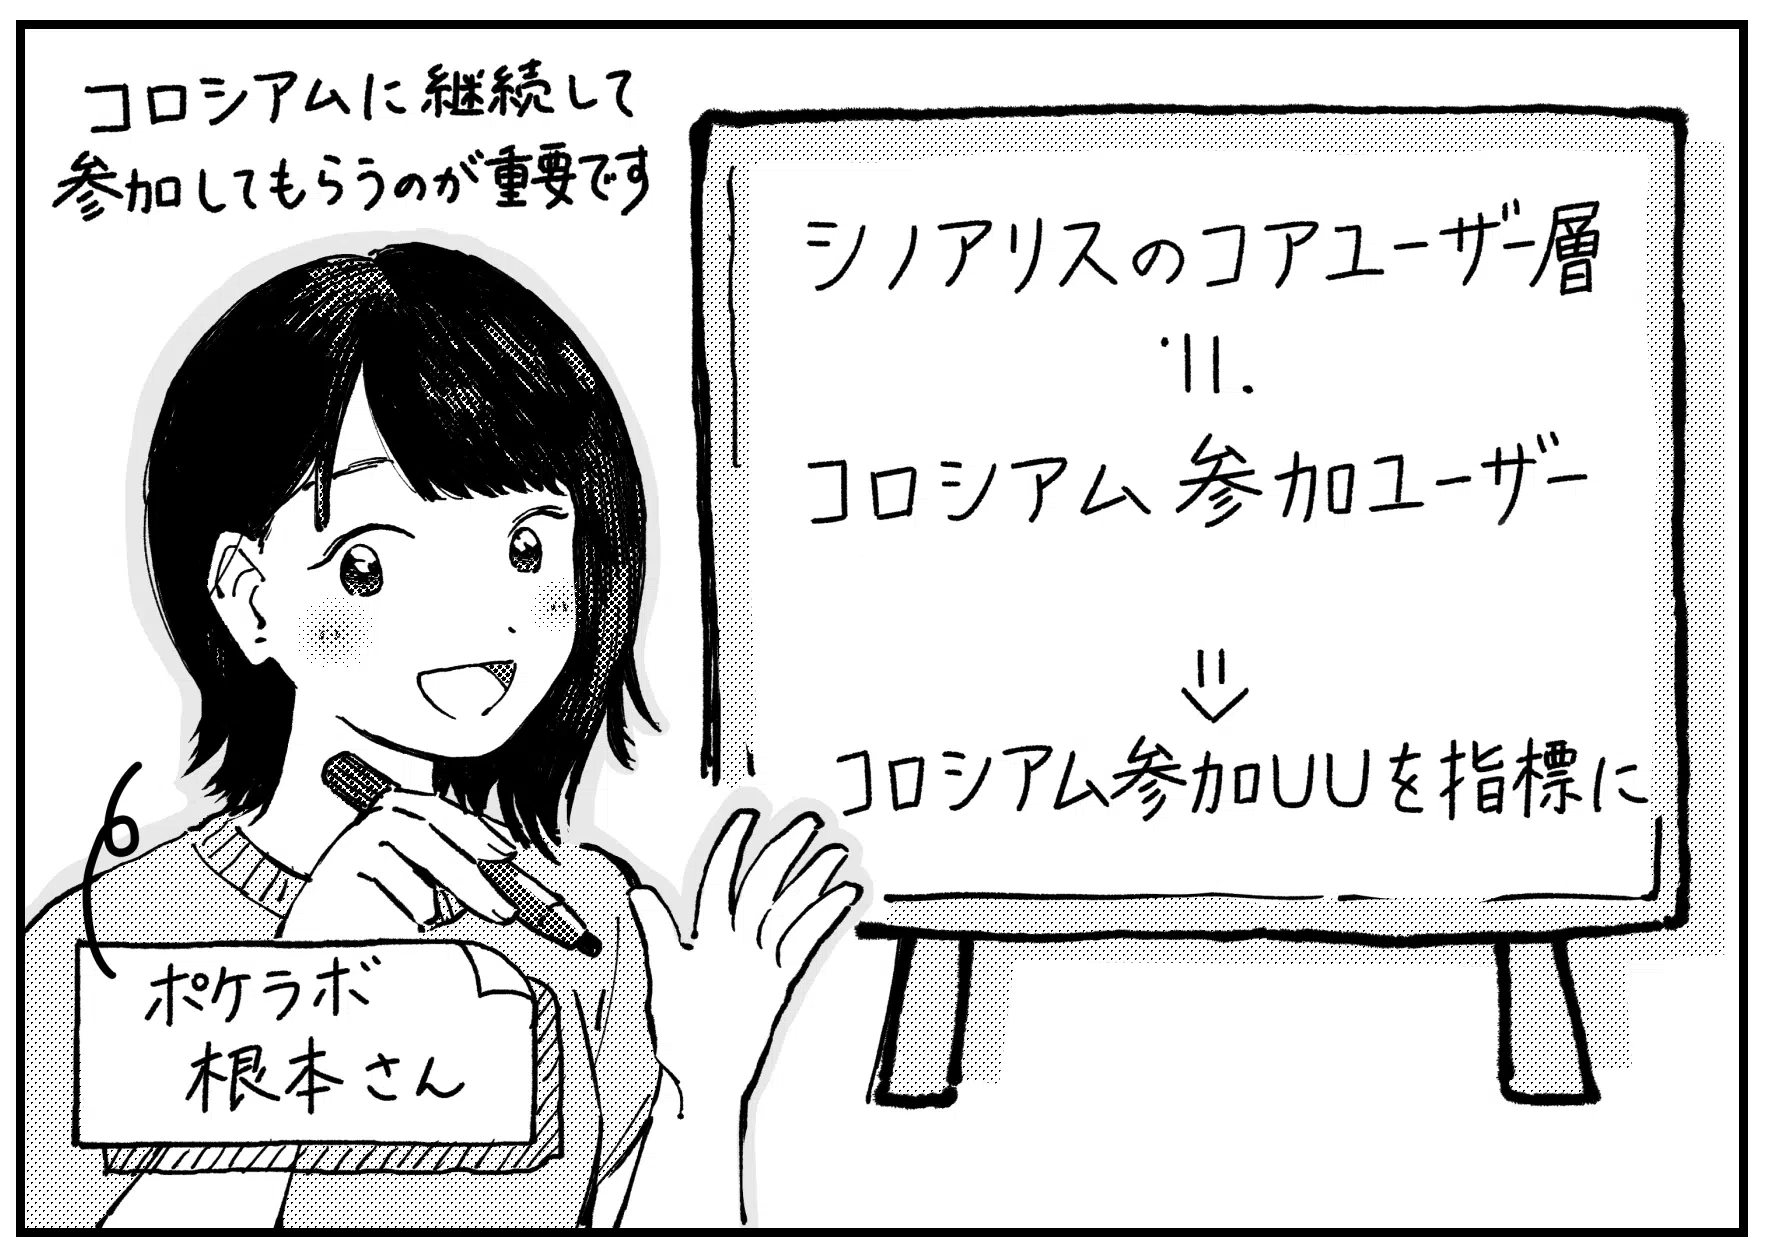 コロシアムに継続して
参加してもらうのが重要です
シノアリスのコアユーザー層
≒
コロシアム参加ユーザー
⇓
コロシアム参加UUを指標に
ポケラボ
根本さん